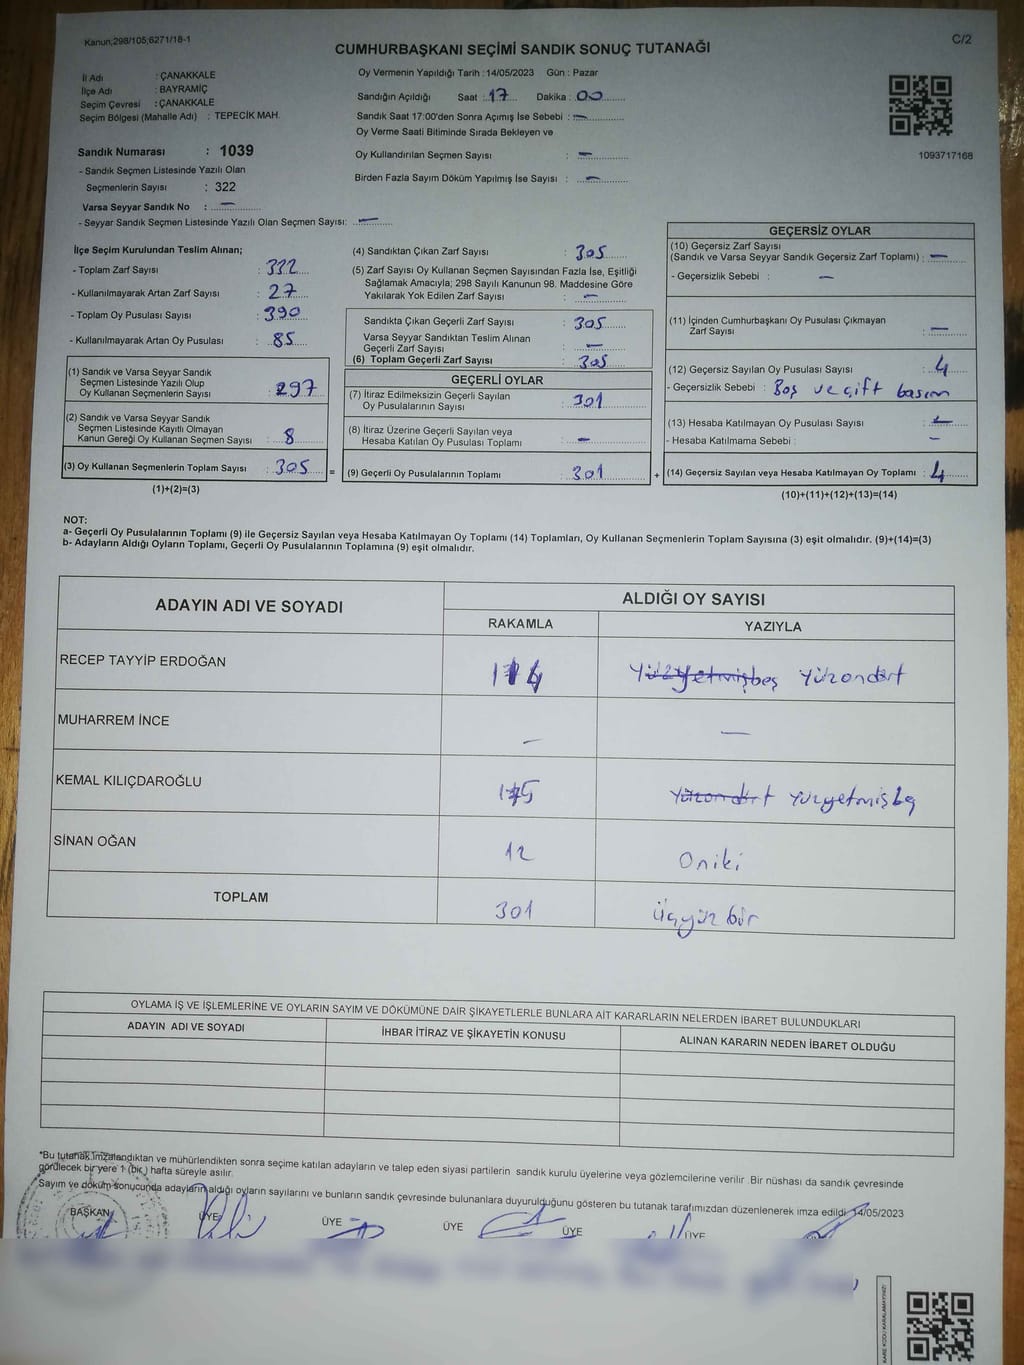 Kanun;298/105;6271/18-1
C/2
CUMHURBAŞKANI SEÇİMİ SANDIK SONUÇ TUTANAĞI
İl Adı : ÇANAKKALE
İlçe Adı : BAYRAMİÇ
Seçim Çevresi : ÇANAKKALE
Seçim Bölgesi (Mahalle Adı) : TEPECİK MAH.
Sandık Numarası : 1039
- Sandık Seçmen Listesinde Yazılı Olan
Seçmenlerin Sayısı : 322
Varsa Seyyar Sandık No : —
- Seyyar Sandık Seçmen Listesinde Yazılı Olan Seçmen Sayısı: —
Oy Vermenin Yapıldığı Tarih : 14/05/2023 Gün : Pazar
Sandığın Açıldığı Saat : 17 Dakika : 00
Sandık Saat 17:00'den Sonra Açımış İse Sebebi : —
Oy Verme Saati Bitiminde Sırada Bekleyen ve
Oy Kullandırılan Seçmen Sayısı : —
Birden Fazla Sayım Döküm Yapılmış İse Sayısı : —
1093717168
İlçe Seçim Kurulundan Teslim Alınan;
- Toplam Zarf Sayısı : 332
- Kullanılmayarak Artan Zarf Sayısı : 27
- Toplam Oy Pusulası Sayısı : 390
- Kullanılmayarak Artan Oy Pusulası : 85
(1) Sandık ve Varsa Seyyar Sandık
Seçmen Listesinde Yazılı Olup
Oy Kullanan Seçmenlerin Sayısı : 297
(2) Sandık ve Varsa Seyyar Sandık
Seçmen Listesinde Kayıtlı Olmayan
Kanun Gereği Oy Kullanan Seçmen Sayısı : 8
(3) Oy Kullanan Seçmenlerin Toplam Sayısı : 305
(1)+(2)=(3)
(4) Sandıktan Çıkan Zarf Sayısı : 305
(5) Zarf Sayısı Oy Kullanan Seçmen Sayısından Fazla İse, Eşitliği
Sağlamak Amacıyla; 298 Sayılı Kanunun 98. Maddesine Göre
Yakılarak Yok Edilen Zarf Sayısı : —
Sandıkta Çıkan Geçerli Zarf Sayısı : 305
Varsa Seyyar Sandıktan Teslim Alınan
Geçerli Zarf Sayısı : —
(6) Toplam Geçerli Zarf Sayısı : 305
=
GEÇERLİ OYLAR
(7) İtiraz Edilmeksizin Geçerli Sayılan
Oy Pusulalarının Sayısı : 301
(8) İtiraz Üzerine Geçerli Sayılan veya
Hesaba Katılan Oy Pusulası Toplamı : —
(9) Geçerli Oy Pusulalarının Toplamı : 301
+
GEÇERSİZ OYLAR
(10) Geçersiz Zarf Sayısı
(Sandık ve Varsa Seyyar Sandık Geçersiz Zarf Toplamı) : —
- Geçersizlik Sebebi : —
(11) İçinden Cumhurbaşkanı Oy Pusulası Çıkmayan
Zarf Sayısı : —
(12) Geçersiz Sayılan Oy Pusulası Sayısı : 4
- Geçersizlik Sebebi : Boş ve çift basım
(13) Hesaba Katılmayan Oy Pusulası Sayısı : —
- Hesaba Katılmama Sebebi : —
(14) Geçersiz Sayılan veya Hesaba Katılmayan Oy Toplamı : 4
(10)+(11)+(12)+(13)=(14)
NOT:
a- Geçerli Oy Pusulalarının Toplamı (9) ile Geçersiz Sayılan veya Hesaba Katılmayan Oy Toplamı (14) Toplamları, Oy Kullanan Seçmenlerin Toplam Sayısına (3) eşit olmalıdır. (9)+(14)=(3)
b- Adayların Aldığı Oyların Toplamı, Geçerli Oy Pusulalarının Toplamına (9) eşit olmalıdır.
ADAYIN ADI VE SOYADI
ALDIĞI OY SAYISI
RAKAMLA YAZIYLA
RECEP TAYYİP ERDOĞAN 114 Yüzyetmişbeş Yüzondört
MUHARREM İNCE — —
KEMAL KILIÇDAROĞLU 175 Yüzondört Yüzyetmişbeş
SİNAN OĞAN 12 Oniki
TOPLAM 301 Üçyüz bir
OYLAMA İŞ VE İŞLEMLERİNE VE OYLARIN SAYIM VE DÖKÜMÜNE DAİR ŞİKAYETLERLE BUNLARA AİT KARARLARIN NELERDEN İBARET BULUNDUKLARI
ADAYIN ADI VE SOYADI İHBAR İTİRAZ VE ŞİKAYETİN KONUSU ALINAN KARARIN NEDEN İBARET OLDUĞU
*Bu tutanak imzalandıktan ve mühürlendikten sonra seçime katılan adayların ve talep eden siyasi partilerin sandık kurulu üyelerine veya gözlemcilerine verilir. Bir nüshası da sandık çevresinde
görülecek bir yere 1 (bir ) hafta süreyle asılır.
Sayım ve döküm sonucunda adayların aldığı oyların sayılarını ve bunların sandık çevresinde bulunanlara duyurulduğunu gösteren bu tutanak tarafımızdan düzenlenerek imza edildi. 14/05/2023
BAŞKAN ÜYE ÜYE ÜYE ÜYE ÜYE
KARE KODU KARALAMAYINIZ!